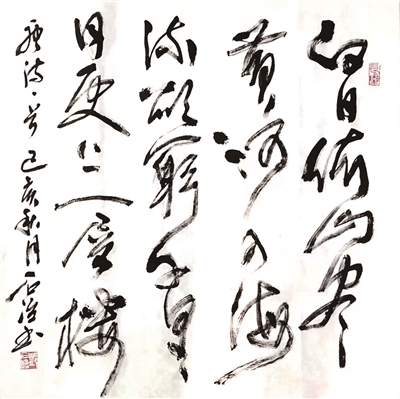 白日依山尽
黄河入海
流欲窮千里
目更上一层楼
诗一首己亥秋月石书